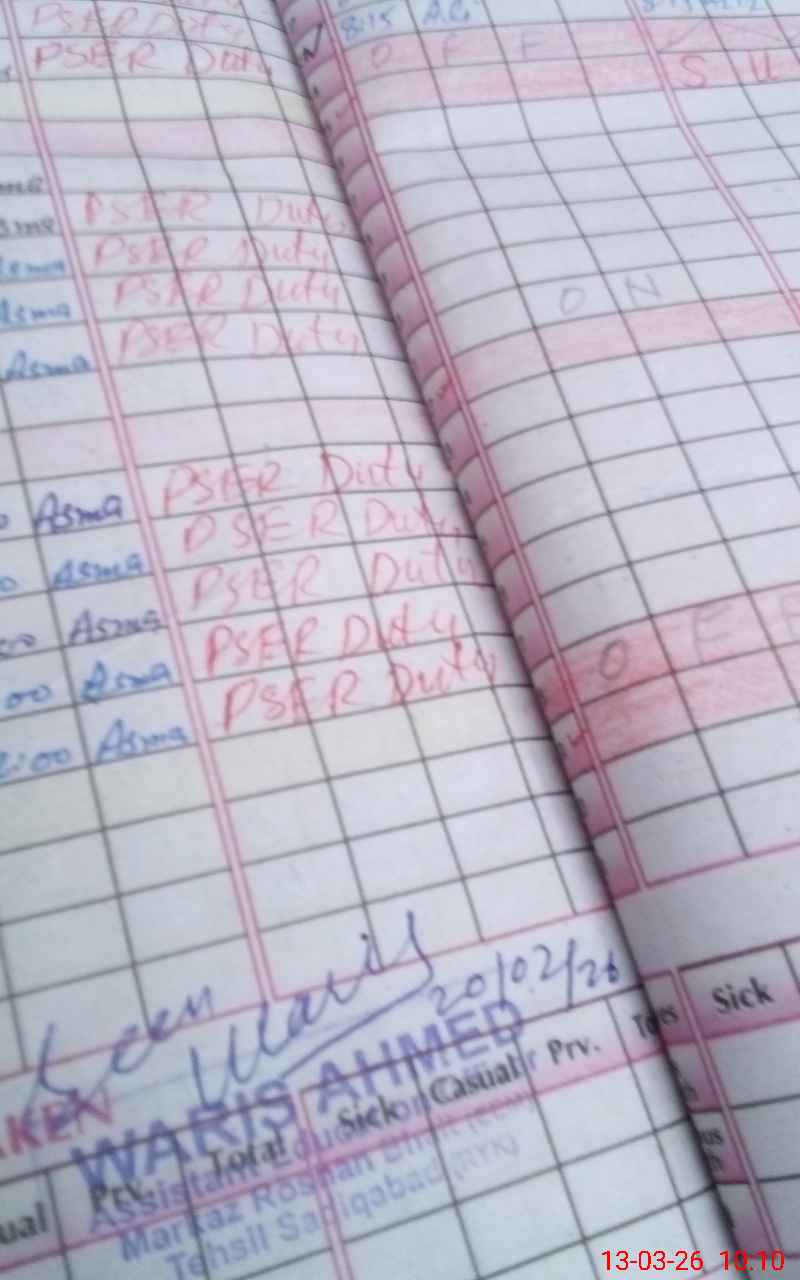 PSER Duty
PSER Duty
Asma PSER Duty
PSER Duty
Asma PSER Duty
Asma PSER Duty
Asma PSER Duty
Asma PSER Duty
Asma PSER Duty
00 Asma PSER Duty
2:00 Asma PSER Duty
Seen Waris
20/02/26
AKEN
WARIS AHMED
Assistant Education
Markaz Roshan
Tehsil Sadiqabad (RYK)
ual Prv. Total Sick Casual Prv.
8:15
O F F
S U
O N
O F F
Sick
13-03-26 10:10